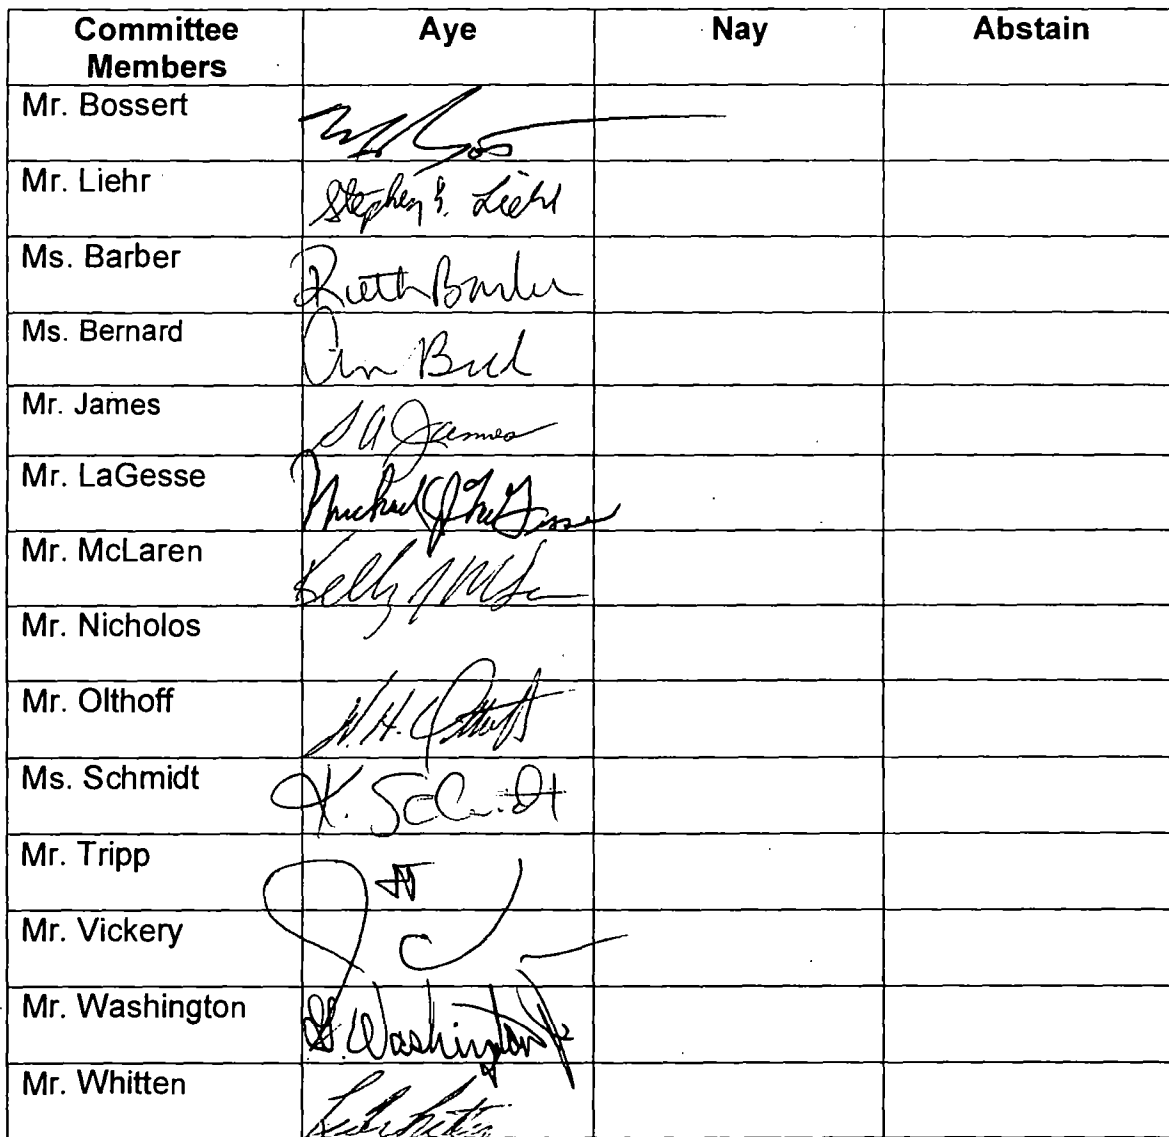 Committee Members Aye Nay Abstain
Mr. Bossert
Mr. Liehr Stephen E. Liehr
Ms. Barber Ruth Barber
Ms. Bernard Ann
Mr. James S A James
Mr. LaGesse Michael J LaGesse
Mr. McLaren Kelly
Mr. Nicholos
Mr. Olthoff W. H. Olthoff
Ms. Schmidt K. Schmidt
Mr. Tripp
Mr. Vickery
Mr. Washington G. Washington Jr
Mr. Whitten